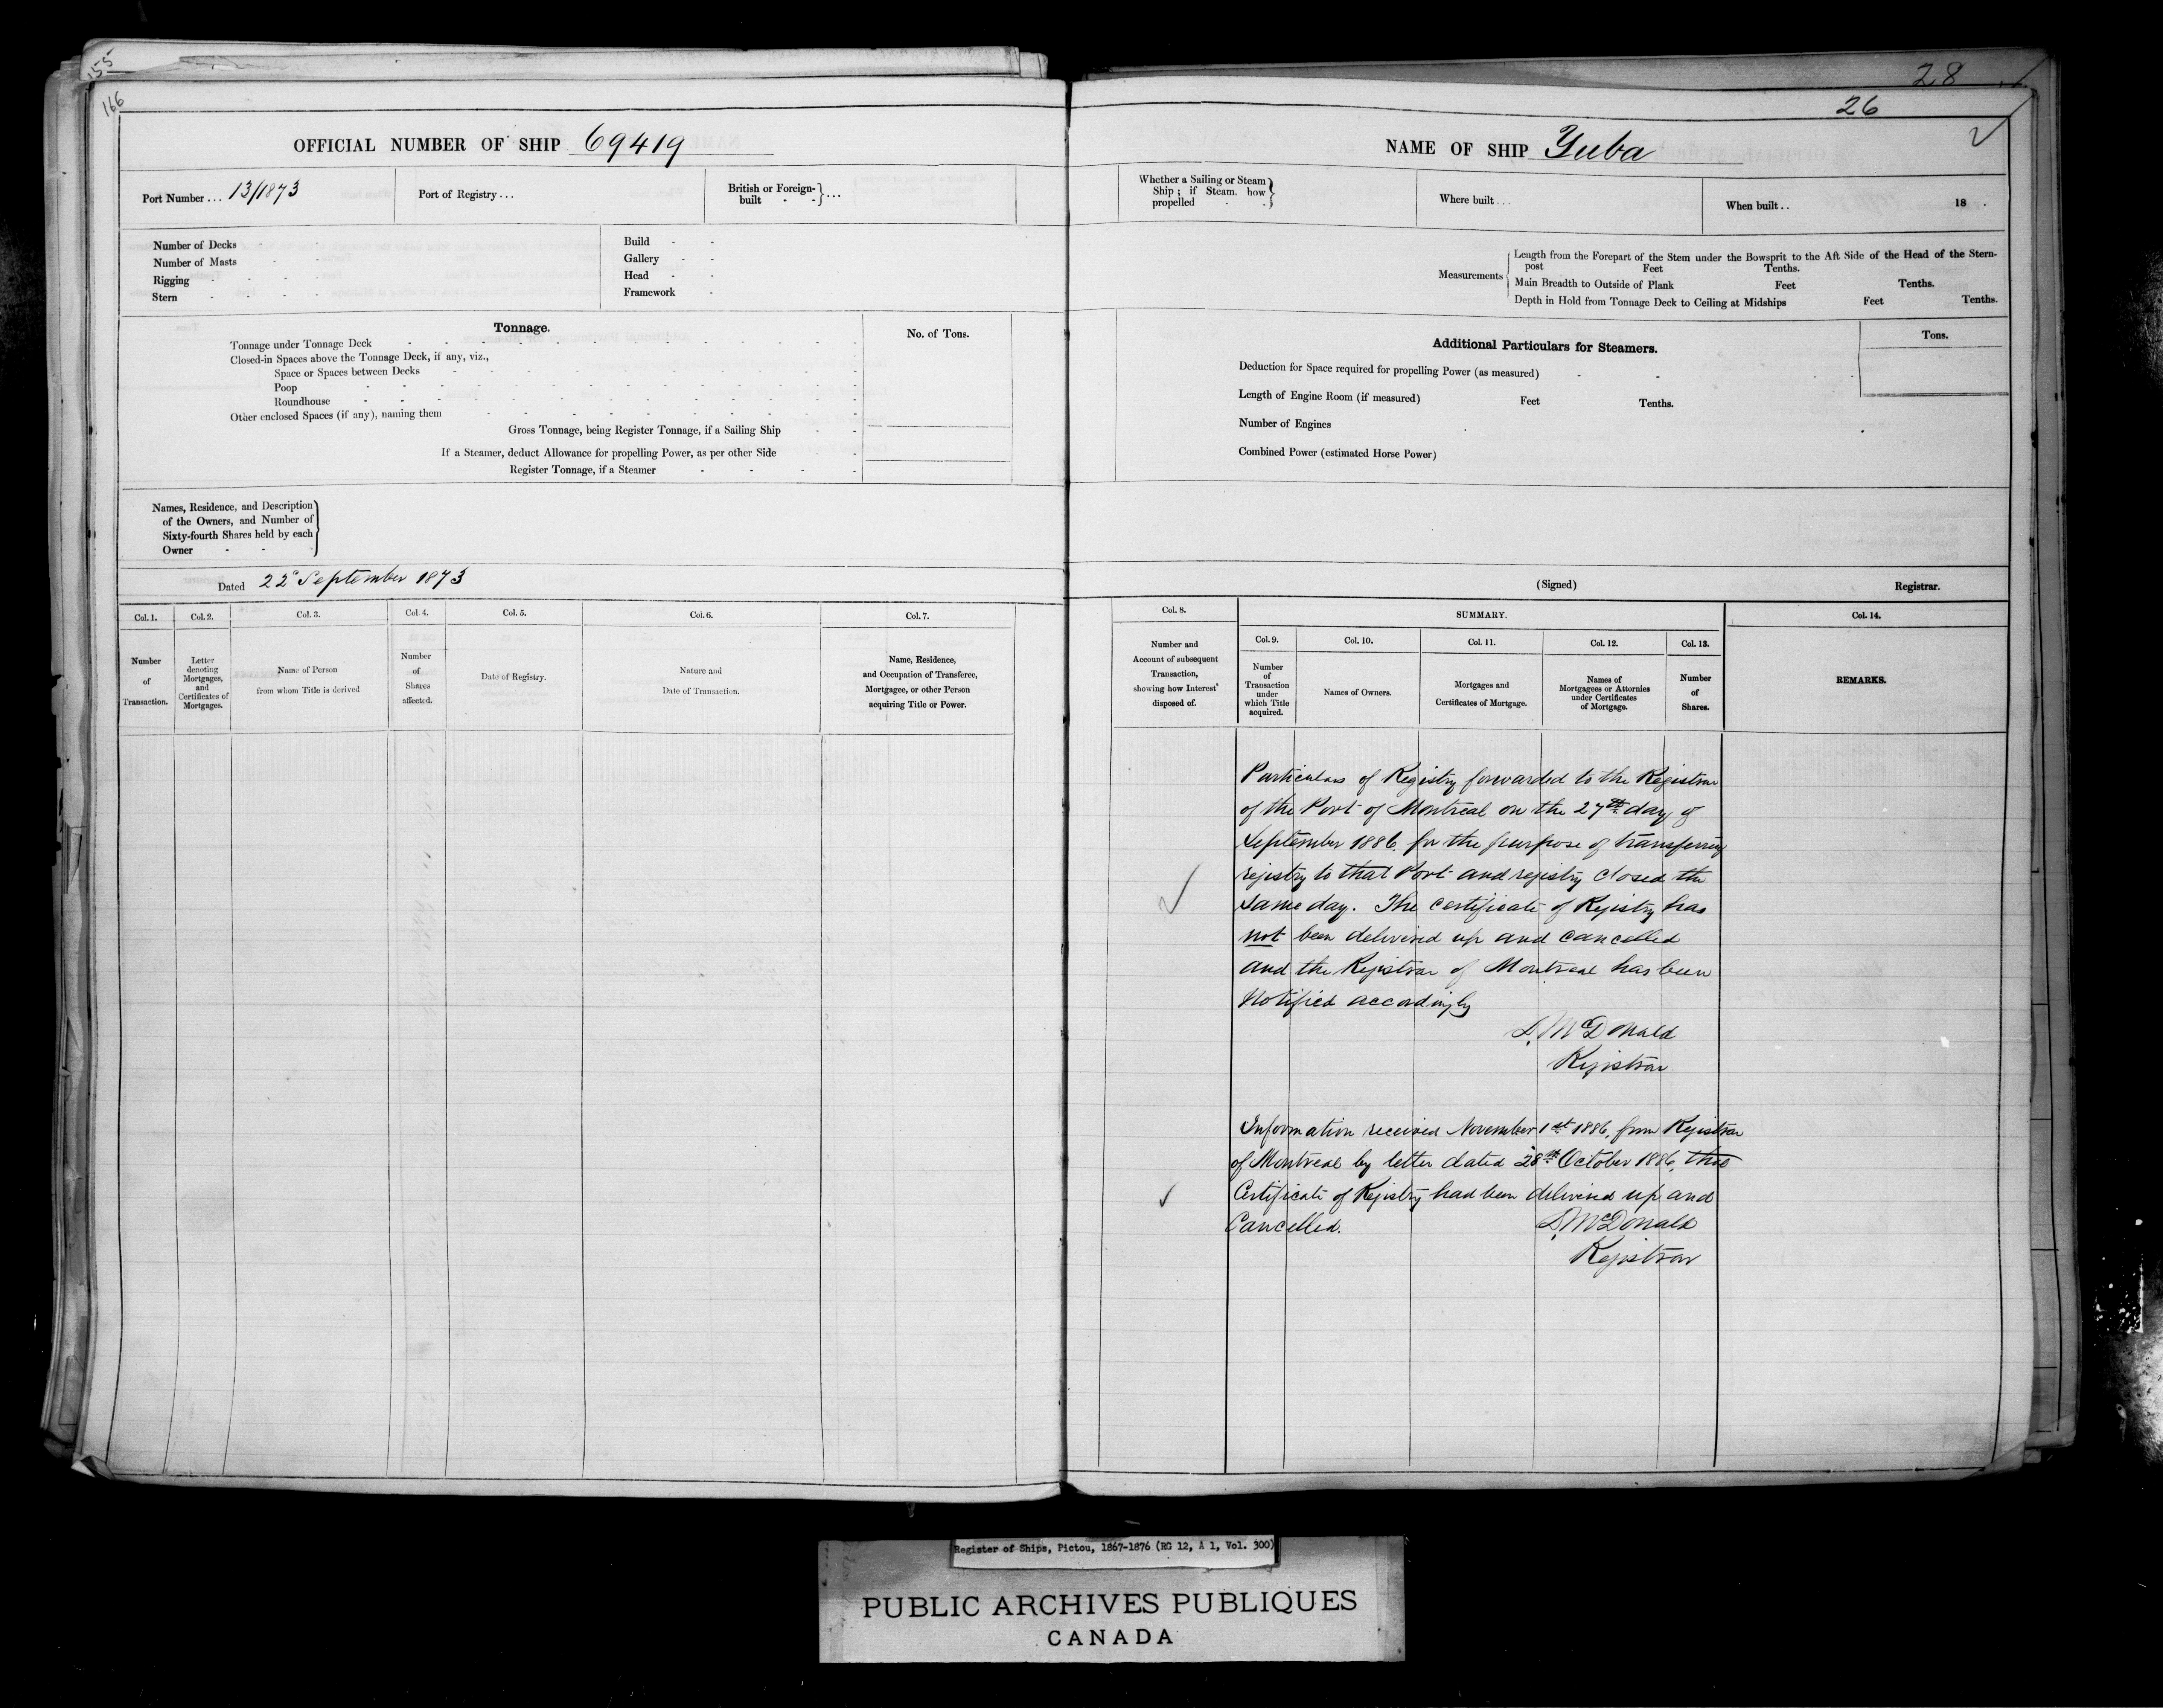 155
166
28
26
OFFICIAL NUMBER OF SHIP 69419
Port Number ... 13/1873
Port of Registry ...
British or Foreign-built - - } ...
Number of Decks - -
Number of Masts - -
Rigging - - - -
Stern - - - -
Build - -
Gallery - -
Head - -
Framework -
Tonnage.
No. of Tons.
Tonnage under Tonnage Deck
Closed-in Spaces above the Tonnage Deck, if any, viz.,
Space or Spaces between Decks
Poop
Roundhouse
Other enclosed Spaces (if any), naming them
Gross Tonnage, being Register Tonnage, if a Sailing Ship
If a Steamer, deduct Allowance for propelling Power, as per other Side
Register Tonnage, if a Steamer
Names, Residence, and Description
of the Owners, and Number of
Sixty-fourth Shares held by each
Owner - -
Dated 22d September 1873
Col. 1.
Number
of
Transaction.
Col. 2.
Letter
denoting
Mortgages,
and
Certificates of
Mortgages.
Col. 3.
Name of Person
from whom Title is derived
Col. 4.
Number
of
Shares
affected.
Col. 5.
Date of Registry.
Col. 6.
Nature and
Date of Transaction.
Col. 7.
Name, Residence,
and Occupation of Transferee,
Mortgagee, or other Person
acquiring Title or Power.
NAME OF SHIP Yuba
Whether a Sailing or Steam
Ship; if Steam. how
propelled - -
Where built ...
When built .. 18 .
Measurements
Length from the Forepart of the Stem under the Bowsprit to the Aft Side of the Head of the Stern-
post Feet Tenths.
Main Breadth to Outside of Plank Feet Tenths.
Depth in Hold from Tonnage Deck to Ceiling at Midships Feet Tenths.
Additional Particulars for Steamers.
Tons.
Deduction for Space required for propelling Power (as measured) - -
Length of Engine Room (if measured) Feet Tenths.
Number of Engines
Combined Power (estimated Horse Power)
(Signed) Registrar.
Col. 8.
Number and
Account of subsequent
Transaction,
showing how Interest
disposed of.
SUMMARY.
Col. 9.
Number
of
Transaction
under
which Title
acquired.
Col. 10.
Names of Owners.
Col. 11.
Mortgages and
Certificates of Mortgage.
Col. 12.
Names of
Mortgagees or Attornies
under Certificates
of Mortgage.
Col. 13.
Number
of
Shares.
Col. 14.
REMARKS.
Particulars of Registry forwarded to the Registrar
of the Port of Montreal on the 27th day of
September 1886 for the purpose of transferring
registry to that Port and registry closed the
same day. The certificate of Registry has
not been delivered up and cancelled
and the Registrar of Montreal has been
notified accordingly
D. McDonald
Registrar
Information received November 1st 1886, from Registrar
of Montreal by letter dated 28th October 1886, that
Certificate of Registry had been delivered up and
Cancelled. D. McDonald
Registrar
Register of Ships, Pictou, 1867-1876 (RG 12, A 1, Vol. 300)
PUBLIC ARCHIVES PUBLIQUES
CANADA